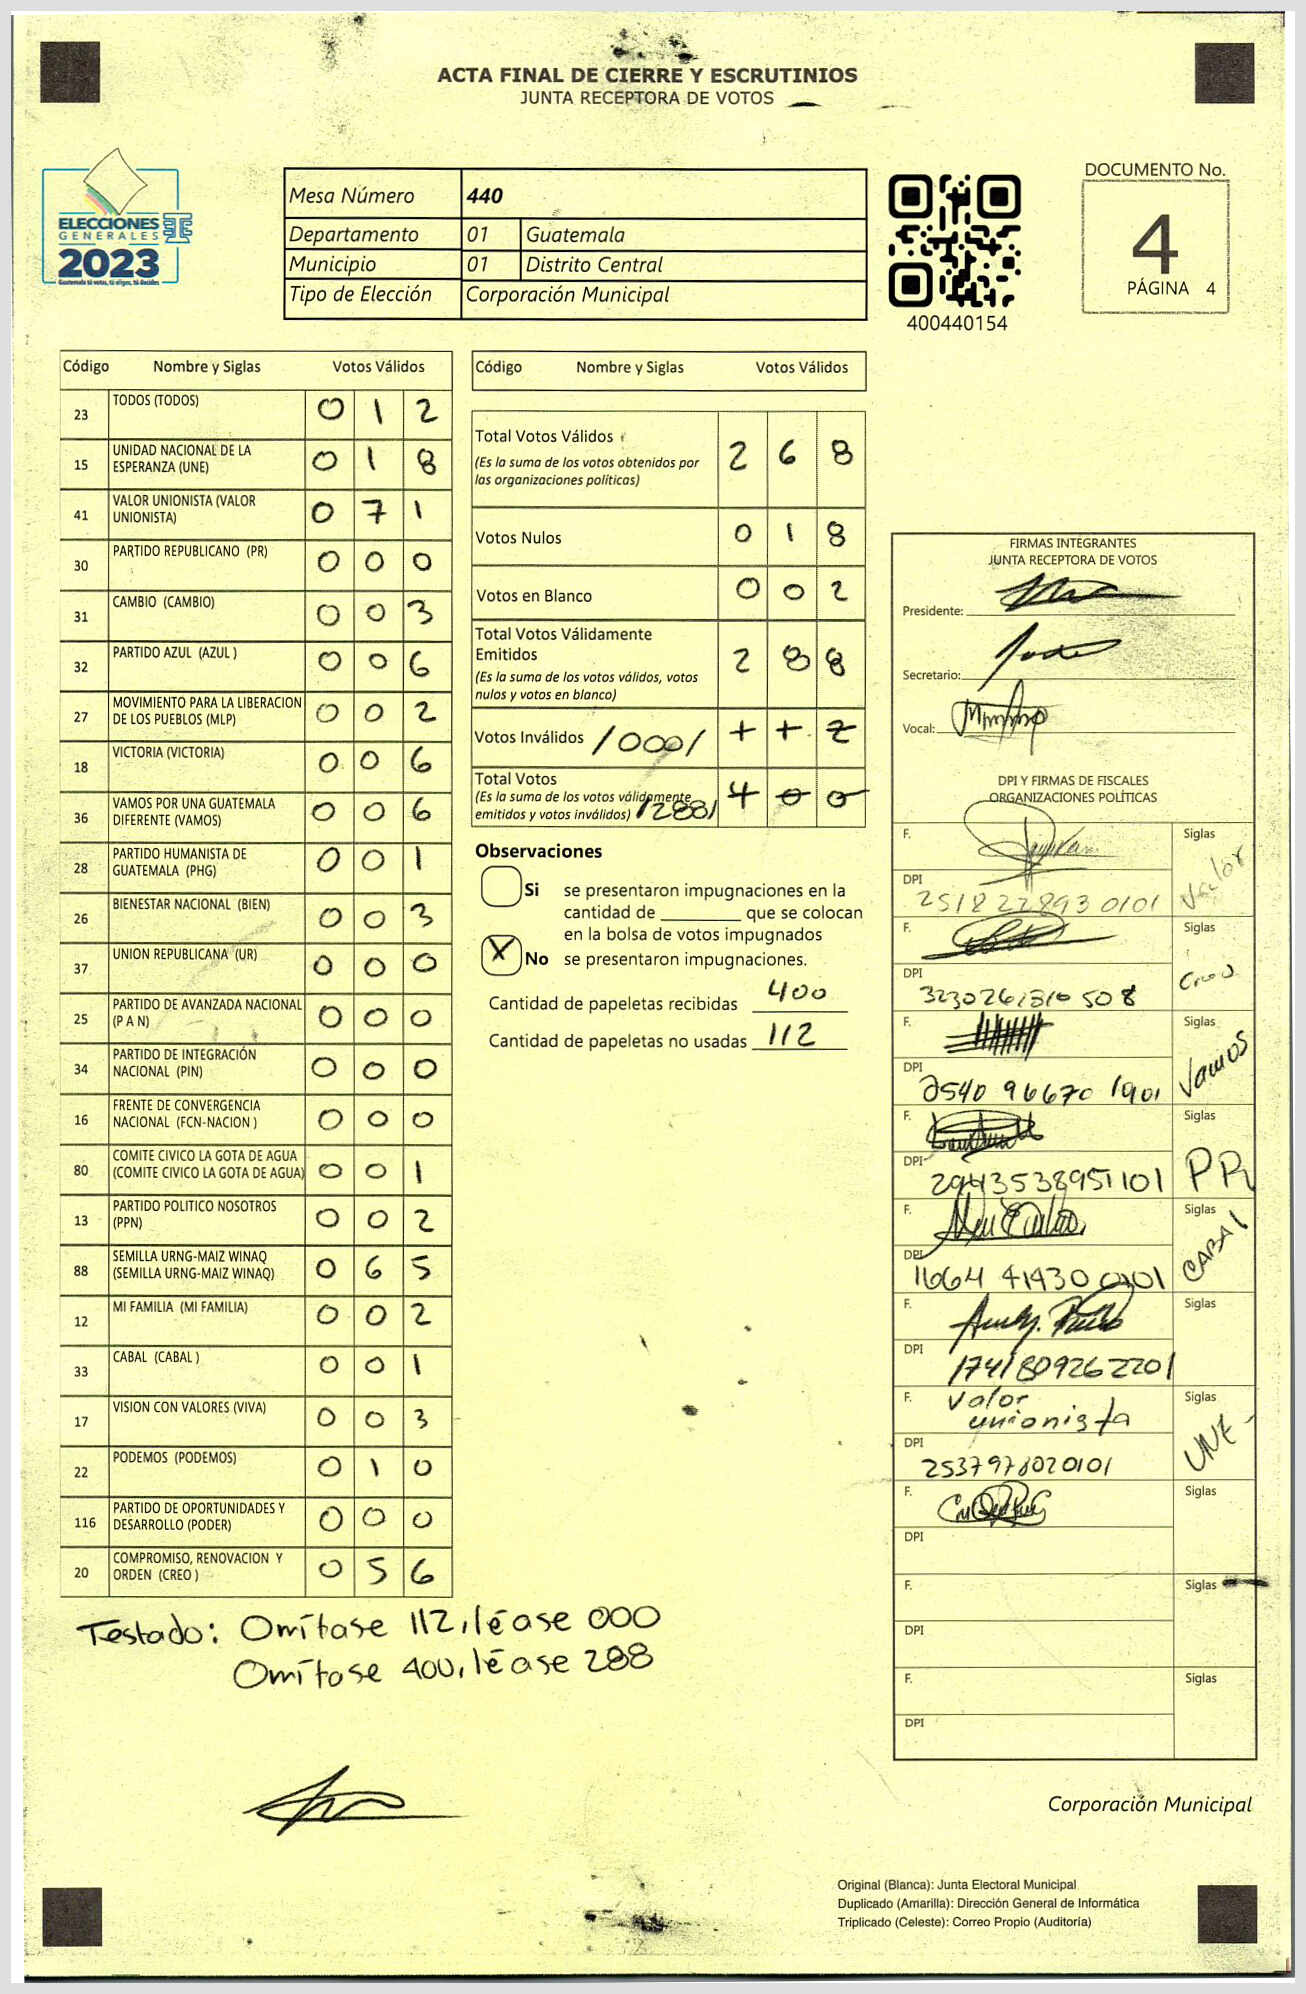 ACTA FINAL DE CIERRE Y ESCRUTINIOS
JUNTA RECEPTORA DE VOTOS
ELECCIONES
GENERALES
2023
Guatemala tú votas, tú eliges, tú decides
Mesa Número 440
Departamento 01 Guatemala
Municipio 01 Distrito Central
Tipo de Elección Corporación Municipal
400440154
DOCUMENTO No.
4
PÁGINA 4
Código Nombre y Siglas Votos Válidos
23 TODOS (TODOS) 0 1 2
15 UNIDAD NACIONAL DE LA
ESPERANZA (UNE) 0 1 8
41 VALOR UNIONISTA (VALOR
UNIONISTA) 0 7 1
30 PARTIDO REPUBLICANO (PR) 0 0 0
31 CAMBIO (CAMBIO) 0 0 3
32 PARTIDO AZUL (AZUL ) 0 0 6
27 MOVIMIENTO PARA LA LIBERACION
DE LOS PUEBLOS (MLP) 0 0 2
18 VICTORIA (VICTORIA) 0 0 6
36 VAMOS POR UNA GUATEMALA
DIFERENTE (VAMOS) 0 0 6
28 PARTIDO HUMANISTA DE
GUATEMALA (PHG) 0 0 1
26 BIENESTAR NACIONAL (BIEN) 0 0 3
37 UNION REPUBLICANA (UR) 0 0 0
25 PARTIDO DE AVANZADA NACIONAL
(P A N) 0 0 0
34 PARTIDO DE INTEGRACIÓN
NACIONAL (PIN) 0 0 0
16 FRENTE DE CONVERGENCIA
NACIONAL (FCN-NACION ) 0 0 0
80 COMITE CIVICO LA GOTA DE AGUA
(COMITE CIVICO LA GOTA DE AGUA) 0 0 1
13 PARTIDO POLITICO NOSOTROS
(PPN) 0 0 2
88 SEMILLA URNG-MAIZ WINAQ
(SEMILLA URNG-MAIZ WINAQ) 0 6 5
12 MI FAMILIA (MI FAMILIA) 0 0 2
33 CABAL (CABAL ) 0 0 1
17 VISION CON VALORES (VIVA) 0 0 3
22 PODEMOS (PODEMOS) 0 1 0
116 PARTIDO DE OPORTUNIDADES Y
DESARROLLO (PODER) 0 0 0
20 COMPROMISO, RENOVACION Y
ORDEN (CREO ) 0 5 6
Testado: Omítase 112, léase 000
Omítase 400, léase 288
Código Nombre y Siglas Votos Válidos
Total Votos Válidos 2 6 8
(Es la suma de los votos obtenidos por
las organizaciones políticas)
Votos Nulos 0 1 8
Votos en Blanco 0 0 2
Total Votos Válidamente
Emitidos 2 8 8
(Es la suma de los votos válidos, votos
nulos y votos en blanco)
Votos Inválidos /000/ 1 1 2
Total Votos
(Es la suma de los votos válidamente
emitidos y votos inválidos) /288/ 4 0 0
Observaciones
Si se presentaron impugnaciones en la
cantidad de ________ que se colocan
en la bolsa de votos impugnados
X No se presentaron impugnaciones.
Cantidad de papeletas recibidas 400
Cantidad de papeletas no usadas 112
FIRMAS INTEGRANTES
JUNTA RECEPTORA DE VOTOS
Presidente:
Secretario:
Vocal:
DPI Y FIRMAS DE FISCALES
ORGANIZACIONES POLÍTICAS
F. Siglas
Valor
DPI
2518 22893 0101
F. Siglas
Creo
DPI
F. Siglas
Vamos
DPI
2540 96670 1901
F. Siglas
PR
DPI
2943538951101
F. Siglas
CABAL
DPI
1664 41430 0101
F. Siglas
DPI
1741809262201
F. Valor Siglas
unionista
UNE
DPI
2537978020101
F. Siglas
DPI
F. Siglas
DPI
F. Siglas
DPI
Corporación Municipal
Original (Blanca): Junta Electoral Municipal
Duplicado (Amarilla): Dirección General de Informática
Triplicado (Celeste): Correo Propio (Auditoría)